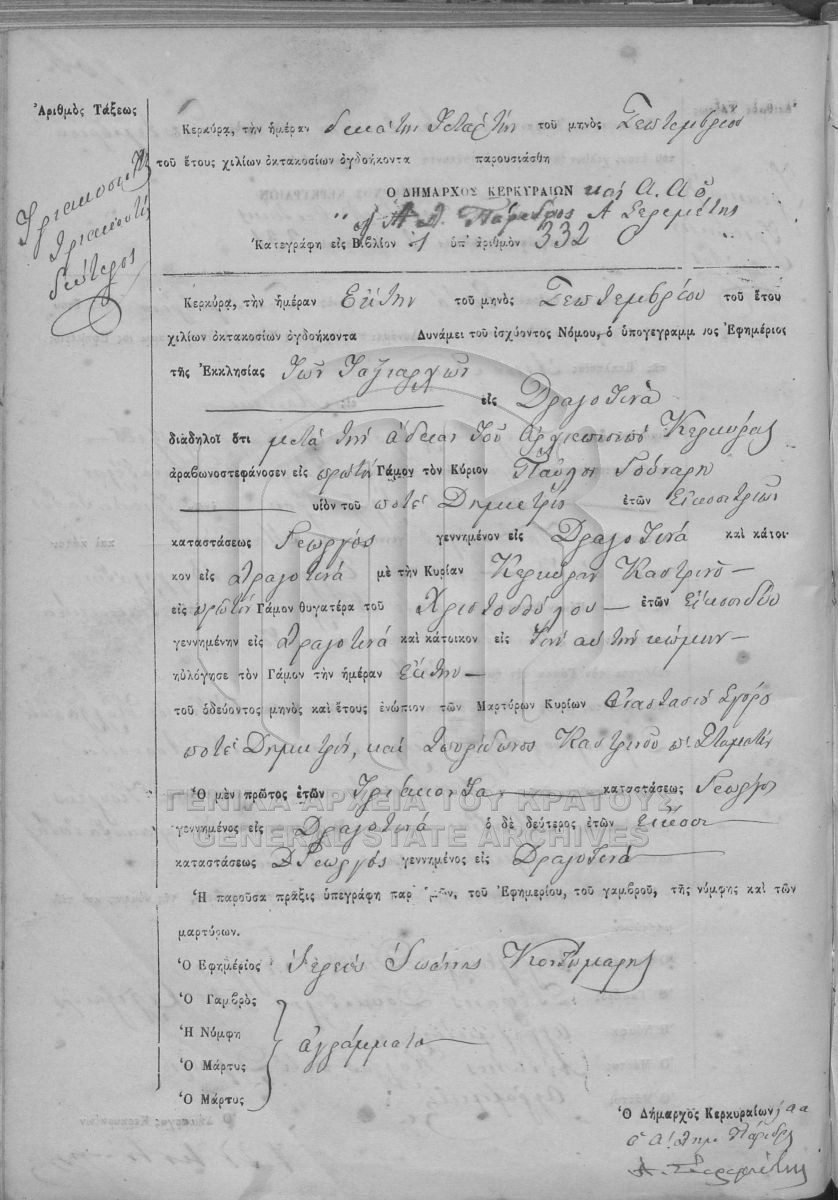 Ἀριθμὸς Τάξεως
Τριακοστὴ
τριακοστὴ
δεύτερος
Κερκύρα, τὴν ἡμέραν δεκάτην τετάρτην τοῦ μηνὸς Σεπτεμβρίου
τοῦ ἔτους χιλίων ὀκτακοσίων ὀγδοήκοντα παρουσιάσθη
Ο ΔΗΜΑΡΧΟΣ ΚΕΡΚΥΡΑΙΩΝ καὶ Α.Α ὁ
Πάρεδρος Α Σερεμέτης
Κατεγράφη εἰς Βιβλίον 1 ὑπ' ἀριθμὸν 332
Κερκύρᾳ, τὴν ἡμέραν Ἕκτην τοῦ μηνὸς Σεπτεμβρίου τοῦ ἔτου
χιλίων ὀκτακοσίων ὀγδοήκοντα Δυνάμει τοῦ ἰσχύοντος Νόμου, ὁ ὑπογεγραμμ νος Ἐφημέριος
τῆς Ἐκκλησίας Τῶν Ταξιαρχῶν
εἰς Δραγοτινὰ
διαδηλοῖ ὅτι μετὰ τὴν ἄδειαν τοῦ Κερκύρας
ἀραβωνοστεφάνοσεν εἰς πρώτην Γάμον τὸν Κύριον Παῦλον Γούναρη
υἱὸν τοῦ ποτὲ Δημητρίο ἐτῶν Εἰκοσιτριῶν
καταστάσεως Γεωργὸς γεννημένον εἰς Δραγοτινὰ καὶ κάτοι-
κον εἰς Δραγοτινὰ μὲ τὴν Κυρίαν Κερκύραν Καστρινοῦ
εἰς πρώτην Γάμον θυγατέρα τοῦ Χριστοδούλου ἐτῶν Εἰκοσιδύο
γεννημένην εἰς Δραγοτινὰ καὶ κάτοικον εἰς Τὴν αὐτὴν κώμην
ηὐλόγησε τὸν Γάμον τὴν ἡμέραν Ἕκτην
τοῦ ὁδεύοντος μηνὸς καὶ ἔτους ἐνώπιον τῶν Μαρτύρων Κυρίων
ποτὲ Δημητρίου, καὶ Σπυρίδωνος Καστρινοῦ π. Σταματίου
Ὁ μὲν πρῶτος ἐτῶν Τριάκοντα καταστάσεως Γεωργὸς
γεννημένος εἰς Δραγοτινὰ ὁ δὲ δεύτερος ἐτῶν Εἴκοσι
ΓΕΝΙΚΑ ΑΡΧΕΙΑ ΤΟΥ ΚΡΑΤΟΥΣ
GENERAL STATE ARCHIVES
καταστάσεως Γεωργὸς γεννημένος εἰς Δραγοτινὰ
Ἡ παροῦσα πρᾶξις ὑπεγράφη παρ' ἡμῶν, τοῦ Ἐφημερίου, τοῦ γαμβροῦ, τῆς νύμφης καὶ τῶν
μαρτύρων.
Ὁ Ἐφημέριος Ἱερεὺς Ἰωάννης Κοντόμαρης
Ὁ Γαμβρὸς
Ἡ Νύμφη
ἀγράμματοι
Ὁ Μάρτυς
Ὁ Μάρτυς
Ὁ Δήμαρχὸς Κερκυραίων, αα
ὁ Α! Δημ Πάρεδρ
Α. Σερεμέτης